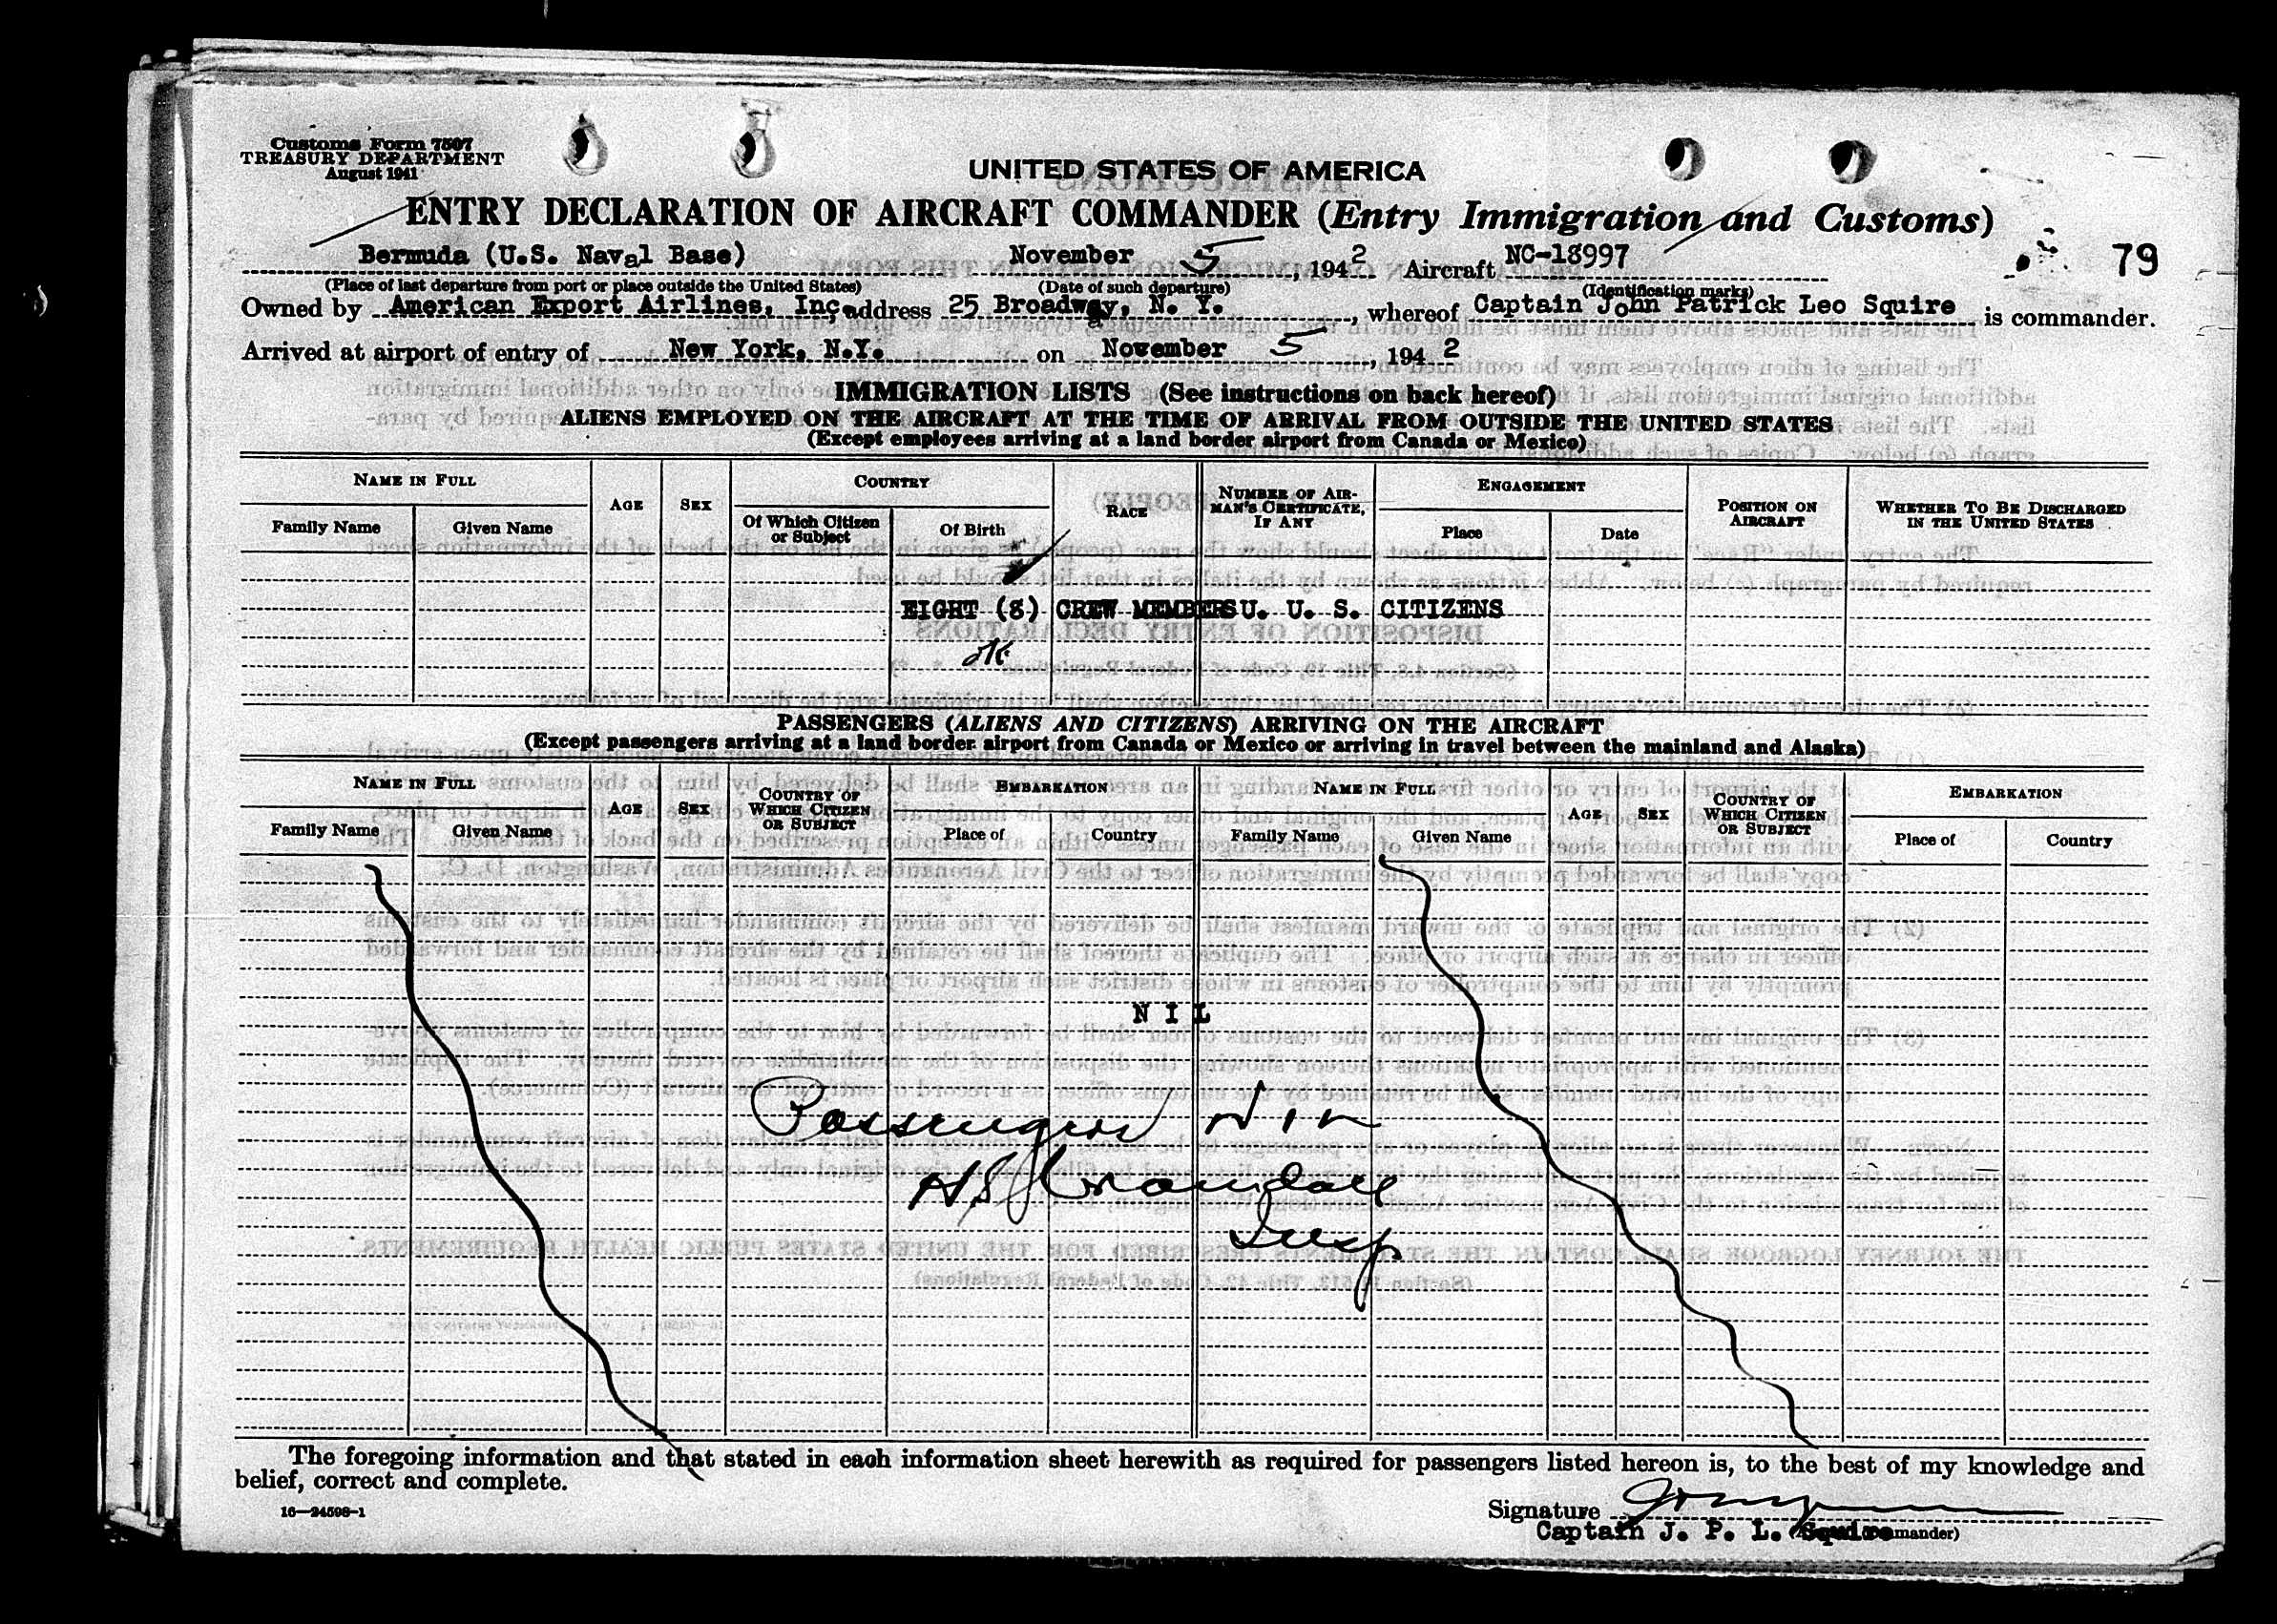 Customs Form 7507
TREASURY DEPARTMENT
August 1941
UNITED STATES OF AMERICA
ENTRY DECLARATION OF AIRCRAFT COMMANDER (Entry Immigration and Customs)
Bermuda (U.S. Naval Base) November 5, 1942 Aircraft NC-18997 79
(Place of last departure from port or place outside the United States) (Date of such departure) (Identification marks)
Owned by American Export Airlines, Inc. address 25 Broadway, N. Y., whereof Captain John Patrick Leo Squire is commander.
Arrived at airport of entry of New York, N.Y. on November 5, 1942
IMMIGRATION LISTS (See instructions on back hereof)
ALIENS EMPLOYED ON THE AIRCRAFT AT THE TIME OF ARRIVAL FROM OUTSIDE THE UNITED STATES
(Except employees arriving at a land border airport from Canada or Mexico)
NAME IN FULL AGE SEX COUNTRY RACE NUMBER OF AIRMAN'S CERTIFICATE, IF ANY ENGAGEMENT POSITION ON AIRCRAFT WHETHER TO BE DISCHARGED IN THE UNITED STATES
Family Name Given Name Of Which Citizen or Subject Of Birth Place Date
EIGHT (8) CREW MEMBERS U. U. S. CITIZENS
OK
PASSENGERS (ALIENS AND CITIZENS) ARRIVING ON THE AIRCRAFT
(Except passengers arriving at a land border airport from Canada or Mexico or arriving in travel between the mainland and Alaska)
NAME IN FULL AGE SEX COUNTRY OF WHICH CITIZEN OR SUBJECT EMBARKATION NAME IN FULL AGE SEX COUNTRY OF WHICH CITIZEN OR SUBJECT EMBARKATION
Family Name Given Name Place of Country Family Name Given Name Place of Country
N I L
Passengers NIL
Insp
The foregoing information and that stated in each information sheet herewith as required for passengers listed hereon is, to the best of my knowledge and
belief, correct and complete.
16—24598-1
Signature
Captain J. P. L. Squire